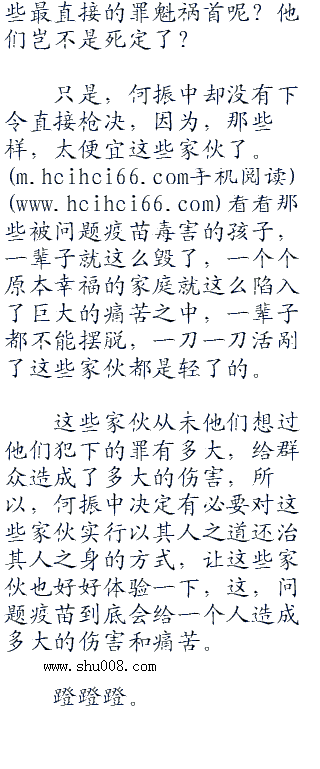 些最直接的罪魁祸首呢？他
们岂不是死定了？
只是，何振中却没有下
令直接枪决，因为，那些
样，太便宜这些家伙了。
(m.hcihci66.com手机阅读)
(www.hcihci66.com)看看那
些被问题疫苗毒害的孩子，
一辈子就这么毁了，一个个
原本幸福的家庭就这么陷入
了巨大的痛苦之中，一辈子
都不能摆脱，一刀一刀活剐
了这些家伙都是轻了的。
这些家伙从未他们想过
他们犯下的罪有多大，给群
众造成了多大的伤害，所
以，何振中决定有必要对这
些家伙实行以其人之道还治
其人之身的方式，让这些家
伙也好好体验一下，这，问
题疫苗到底会给一个人造成
多大的伤害和痛苦。
www.shu008.com
蹬蹬蹬。